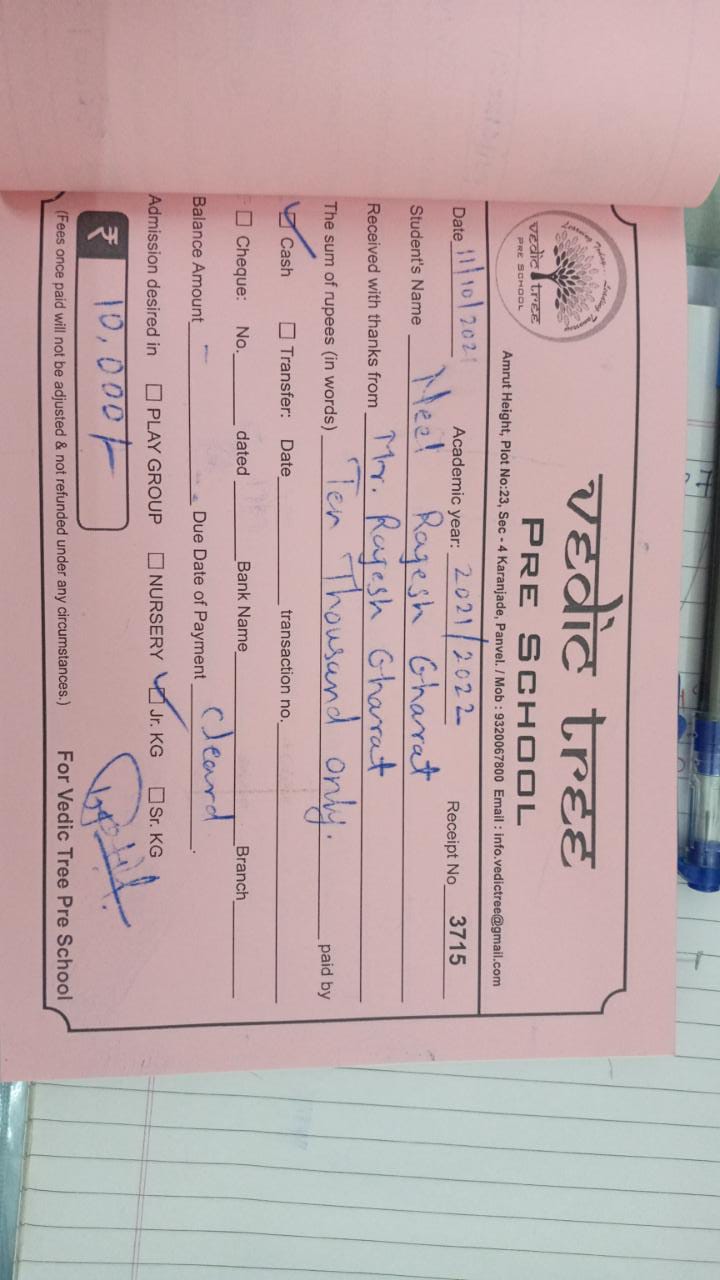 vedic tree
PRE SCHOOL
vedic tree
PRE SCHOOL
Amrut Height, Plot No:23, Sec - 4 Karanjade, Panvel. / Mob : 9320067800 Email : info.vedictree@gmail.com
Date 11/10/2021 Academic year: 2021/2022 Receipt No 3715
Student's Name Meet Rajesh Gharat
Received with thanks from Mr. Rajesh Gharat
The sum of rupees (in words) Ten Thousand only. paid by
Cash Transfer: Date transaction no.
Cheque: No. dated Bank Name Branch
Balance Amount - Due Date of Payment cleard.
Admission desired in PLAY GROUP NURSERY Jr. KG Sr. KG
₹ 10,000/-
(Fees once paid will not be adjusted & not refunded under any circumstances.) For Vedic Tree Pre School